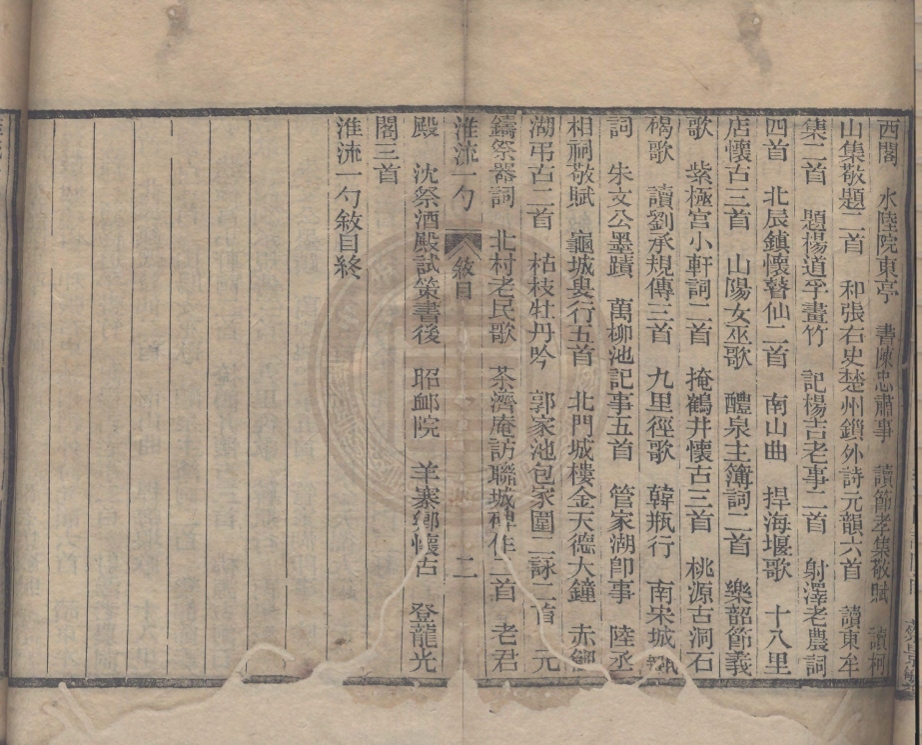 西閣　水陸院東亭　書陳忠肅事　讀節孝集敬賦　讀柯
山集敬題二首　和張右史楚州鎖外詩元韻六首　讀東牟
集二首　題楊道孚畫竹　記楊吉老事二首　射澤老農詞
四首　北辰鎮懷瞽仙二首　南山曲　捍海堰歌　十八里
店懷古三首　山陽女巫歌　醴泉主簿詞二首　樂韶節義
歌　紫極宮小軒詞二首　掩鶴井懷古三首　桃源古洞石
楬歌　讀劉承規傳三首　九里徑歌　韓瓶行　南宋城
詞　朱文公墨蹟　萬柳池記事五首　管家湖卽事　陸丞
相祠敬賦　龜城叟行五首　北門城樓金天德大鐘　赤
湖弔古二首　枯枝牡丹吟　郭家池包家圍二詠二首　元
鑄祭器詞　北村老民歌　茶濟庵訪聯城碑作二首　老君
淮流一勺　敘目　二
殿　沈祭酒殿試策書後　昭卹院　羊寨鄉懷古　登龍光
閣三首
淮流一勺敘目終